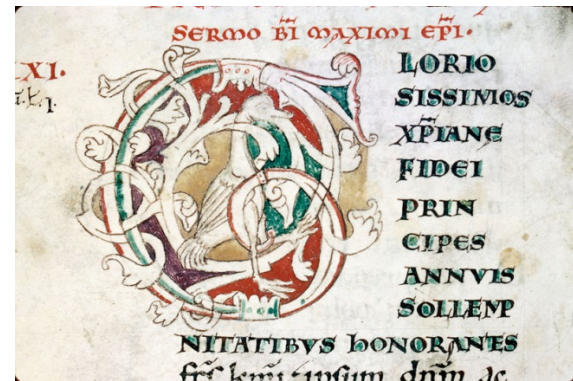 SERMO BI MAXIMI EPI.
XI.
LORIO
SISSIMOS
XPIANE
FIDEI
PRIN
CIPES
ANNVIS
SOLLEMP
NITATIBVS hONORANTES
ipsum dnm ac